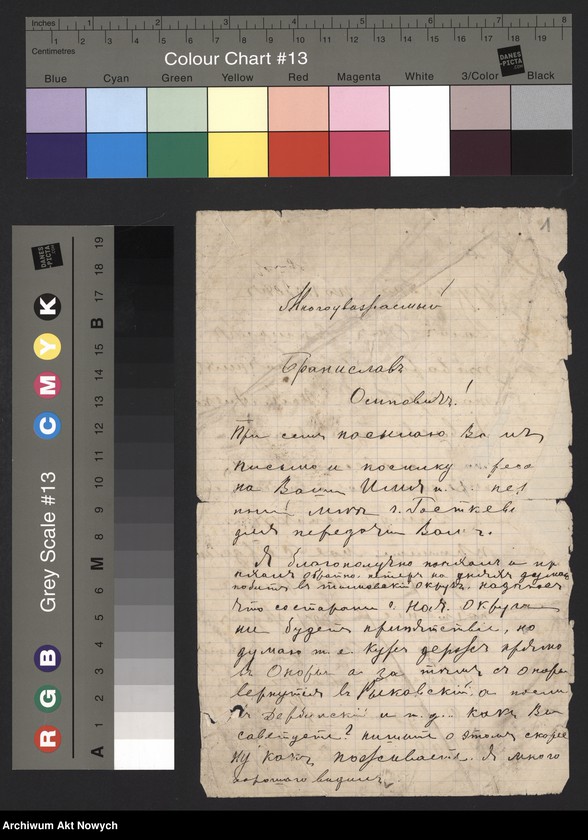 Inches 1 2 3 4 5 6 7 8
Centimetres 1 2 3 4 5 6 7 8 9 10 11 12 13 14 15 16 17 18 19
Colour Chart #13
DANES PICTA .COM
Blue Cyan Green Yellow Red Magenta White 3/Color Black
Grey Scale #13
R G B C M Y K
A 1 2 3 4 5 6 M 8 9 10 11 12 13 14 15 B 17 18 19
DANES PICTA .COM
1
Многоуважаемый
Брониславъ
Осиповичъ!
При семъ посылаю Вамъ
письмо и посылку
на Ваше Имя и
г. Госткеве
для передачи Вамъ.
Я благополучно поехалъ и
обратно теперь на дняхъ думаю
въ Тымовский округъ, надеюсь
что со стороны г. Нач. Округа
не будетъ препятствие, но
думаю т. е. курс держать прямо
въ Оноры а за темъ съ Оноръ
вернутся въ Рыковский а
въ Дербинский и т. д.. какъ Вы
советуете? пишите о этомъ скорее
Ну какъ поживаете. Я много
хорошаго виделъ.
Archiwum Akt Nowych